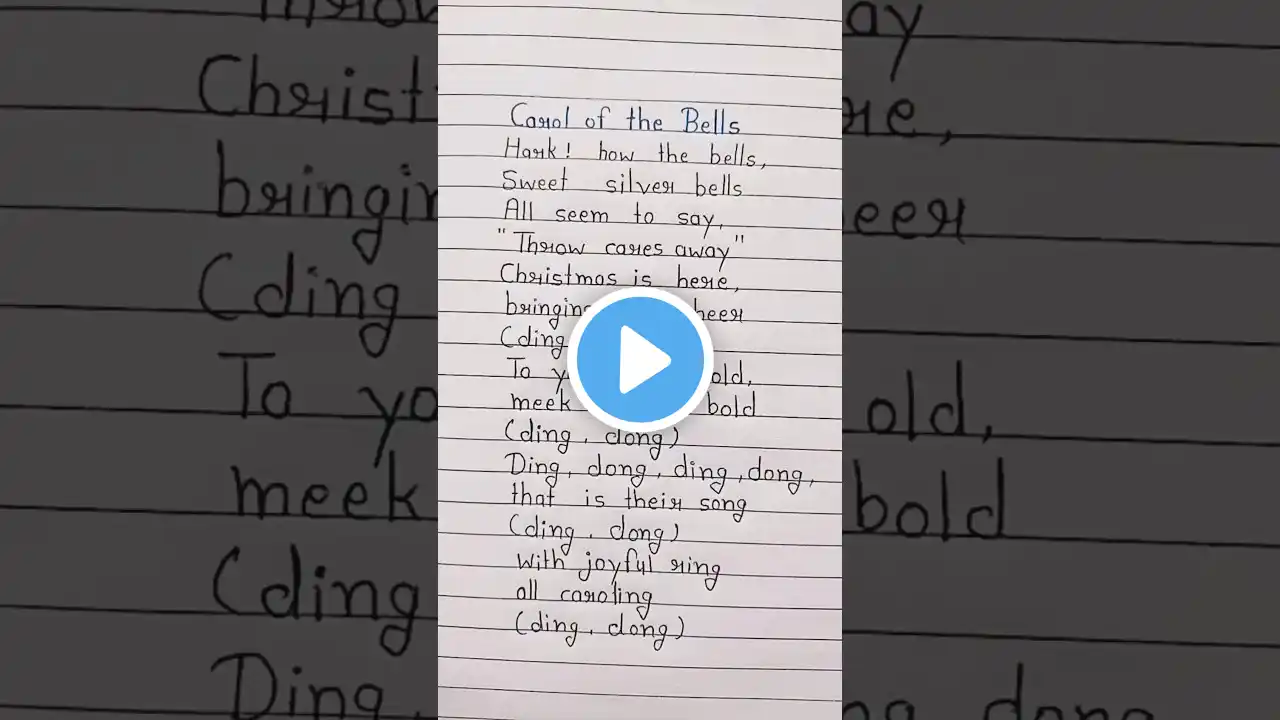 Carol of the Bells
Hark! how the bells,
Sweet silver bells
All seem to say,
"Throw cares away"
Christmas is here,
bringing heer
(ding
To y old,
meek bold
(ding, dong)
Ding, dong, ding, dong,
that is their song
(ding, dong)
with joyful ring
all caroling
(ding, dong)